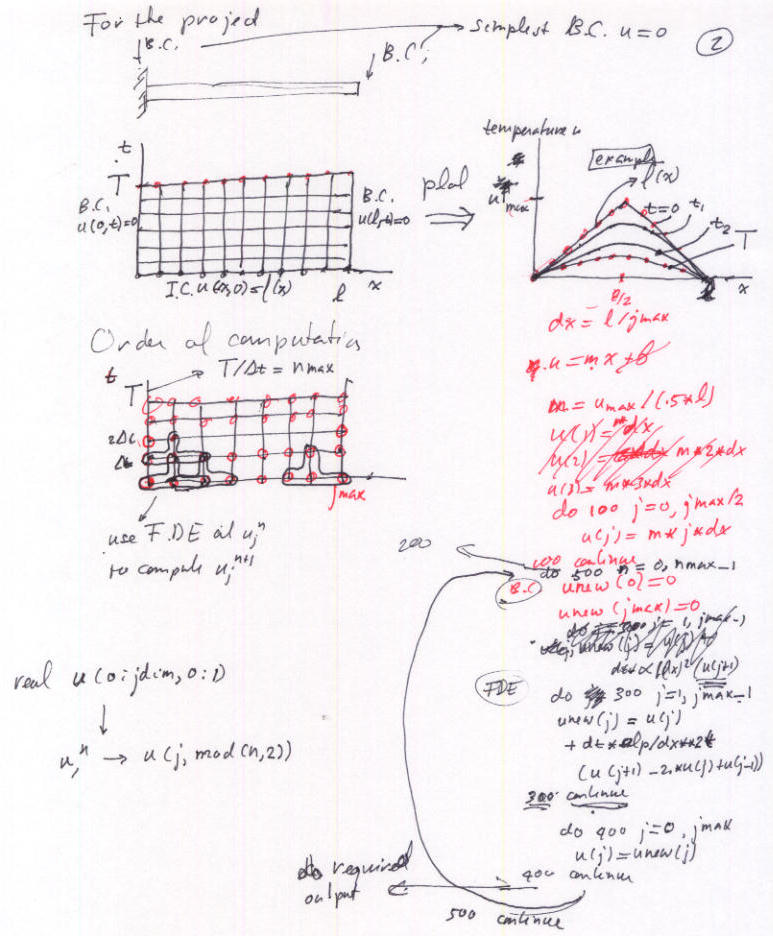 For the project
simplest B.C. u=0
2
B.C.
B.C.
t
T
B.C.
u(0,t)=0
B.C.
u(l,t)=0
I.C. u(x,0)=f(x)
l
x
plot
temperature u
example
f(x)
umax
t=0
t1
t2
T
l/2
x
dx = l/jmax
u = mx + b
m = umax/(.5*l)
u(j) = m*dx
u(2) = m*2*dx
u(3) = m*3*dx
do 100 j=0, jmax/2
u(j) = m*j*dx
100 continue
200
do 500 n=0, nmax-1
B.C.
unew(0)=0
unew(jmax)=0
FDE
do 300 j=1, jmax-1
unew(j) = u(j)
+ dt*alp/dx**2*
(u(j+1) -2.*u(j)+u(j-1))
300 continue
do 400 j=0, jmax
u(j)=unew(j)
400 continue
500 continue
do required
output
Order of computation
T/Δt = nmax
t
T
2Δt
Δt
jmax
use F.DE at u_j^n
to compute u_j^n+1
real u(0:jdim,0:1)
u_j^n → u(j, mod(n,2))